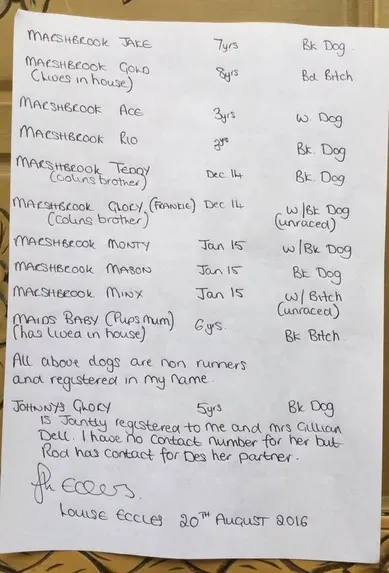 MARSHBROOK JAKE 7yrs Bk Dog
MARSHBROOK GOLD 8yrs Bd Bitch
(Lives in house)
MARSHBROOK ACE 3yrs W. Dog
MARSHBROOK RIO Bk. Dog
MARSHBROOK TEDDY Dec 14 Bk. Dog
(Colins brother)
MARSHBROOK GLORY (FRANKIE) Dec 14 W/Bk Dog
(Colins brother) (unraced)
MARSHBROOK MONTY Jan 15 W/Bk Dog
MARSHBROOK MABON Jan 15 Bk Dog
MARSHBROOK MINX Jan 15 W/ Bitch
(unraced)
MAIDS BABY (Pups mum) 6yrs. Bk Bitch
(has lived in house)
All above dogs are non runners
and registered in my name.
JOHNNYS GLORY 5yrs Bk Dog
is Jointly registered to me and mrs Gillian
Dell. I have no contact number for her but
Rod has contact for Des her partner.
Eccles.
LOUISE ECCLES 20TH AUGUST 2016